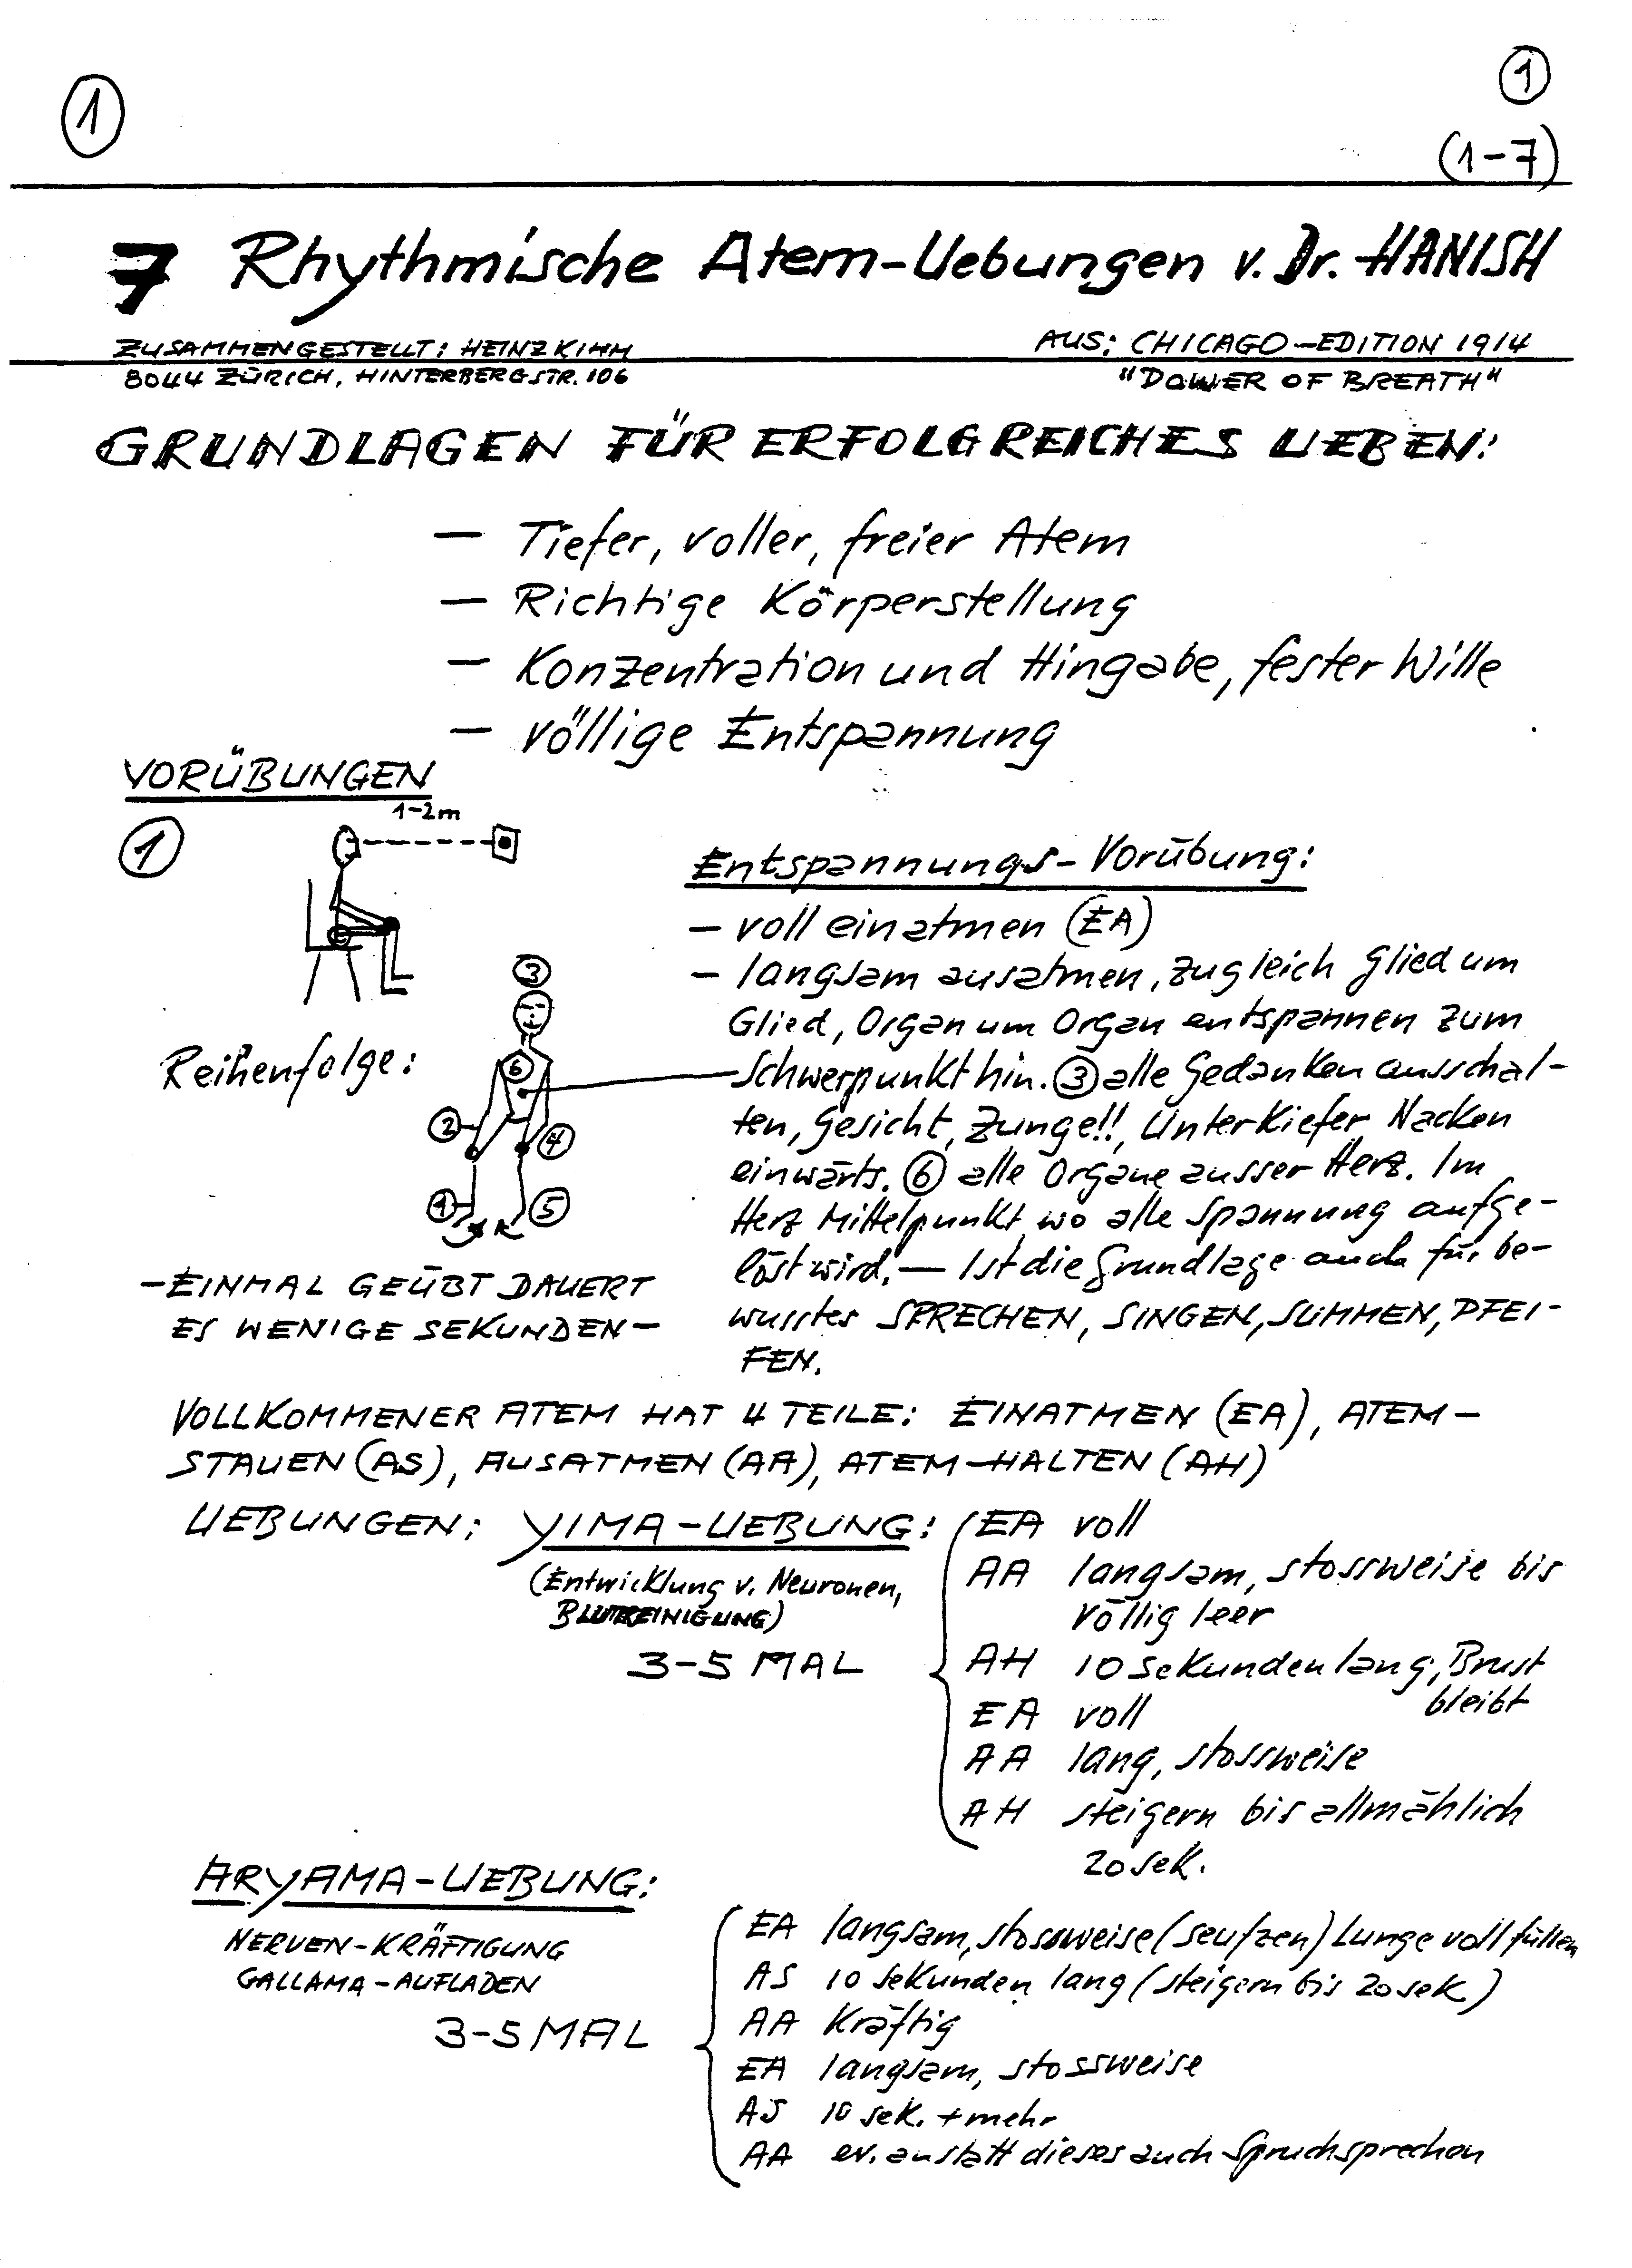 1
1
(1-7)
7 Rhythmische Atem-Uebungen v. Dr. HANISH
ZUSAMMENGESTELLT: HEINZ KIHM
8044 ZÜRICH, HINTERBERGSTR. 106
AUS: CHICAGO-EDITION 1914
"POWER OF BREATH"
GRUNDLAGEN FÜR ERFOLGREICHES UEBEN:
— Tiefer, voller, freier Atem
— Richtige Körperstellung
— Konzentration und Hingabe, fester Wille
— völlige Entspannung
VORÜBUNGEN
1-2m
1
Entspannungs-Vorübung:
— voll einatmen (EA)
— langsam ausatmen, zugleich Glied um
Glied, Organ um Organ entspannen zum
Schwerpunkt hin. 3 alle Gedanken ausschal-
ten, Gesicht, Zunge!!, Unterkiefer Nacken
einwärts. 6 alle Organe ausser Herz. Im
Herz Mittelpunkt, wo alle Spannung aufge-
löst wird. — Ist die Grundlage auch für be-
wusstes SPRECHEN, SINGEN, SUMMEN, PFEI-
FEN.
Reihenfolge:
3
6
2
4
1
5
— EINMAL GEÜBT DAUERT
ES WENIGE SEKUNDEN —
VOLLKOMMENER ATEM HAT 4 TEILE: EINATMEN (EA), ATEM-
STAUEN (AS), AUSATMEN (AA), ATEM-HALTEN (AH)
UEBUNGEN: YIMA-UEBUNG:
(Entwicklung v. Neuronen,
BLUTREINIGUNG)
3-5 MAL
EA voll
AA langsam, stossweise bis
völlig leer
AH 10 Sekunden lang, Brust
bleibt
EA voll
AA lang, stossweise
AH steigern bis allmählich
20 sek.
ARYAMA-UEBUNG:
NERVEN-KRÄFTIGUNG
GALLAMA-AUFLADEN
3-5 MAL
EA langsam, stossweise (seufzen) Lunge voll füllen
AS 10 Sekunden lang (steigern bis 20 sek)
AA Kräftig
EA langsam, stossweise
AS 10 sek. + mehr
AA ev. anstatt dieses auch Spruchsprechen